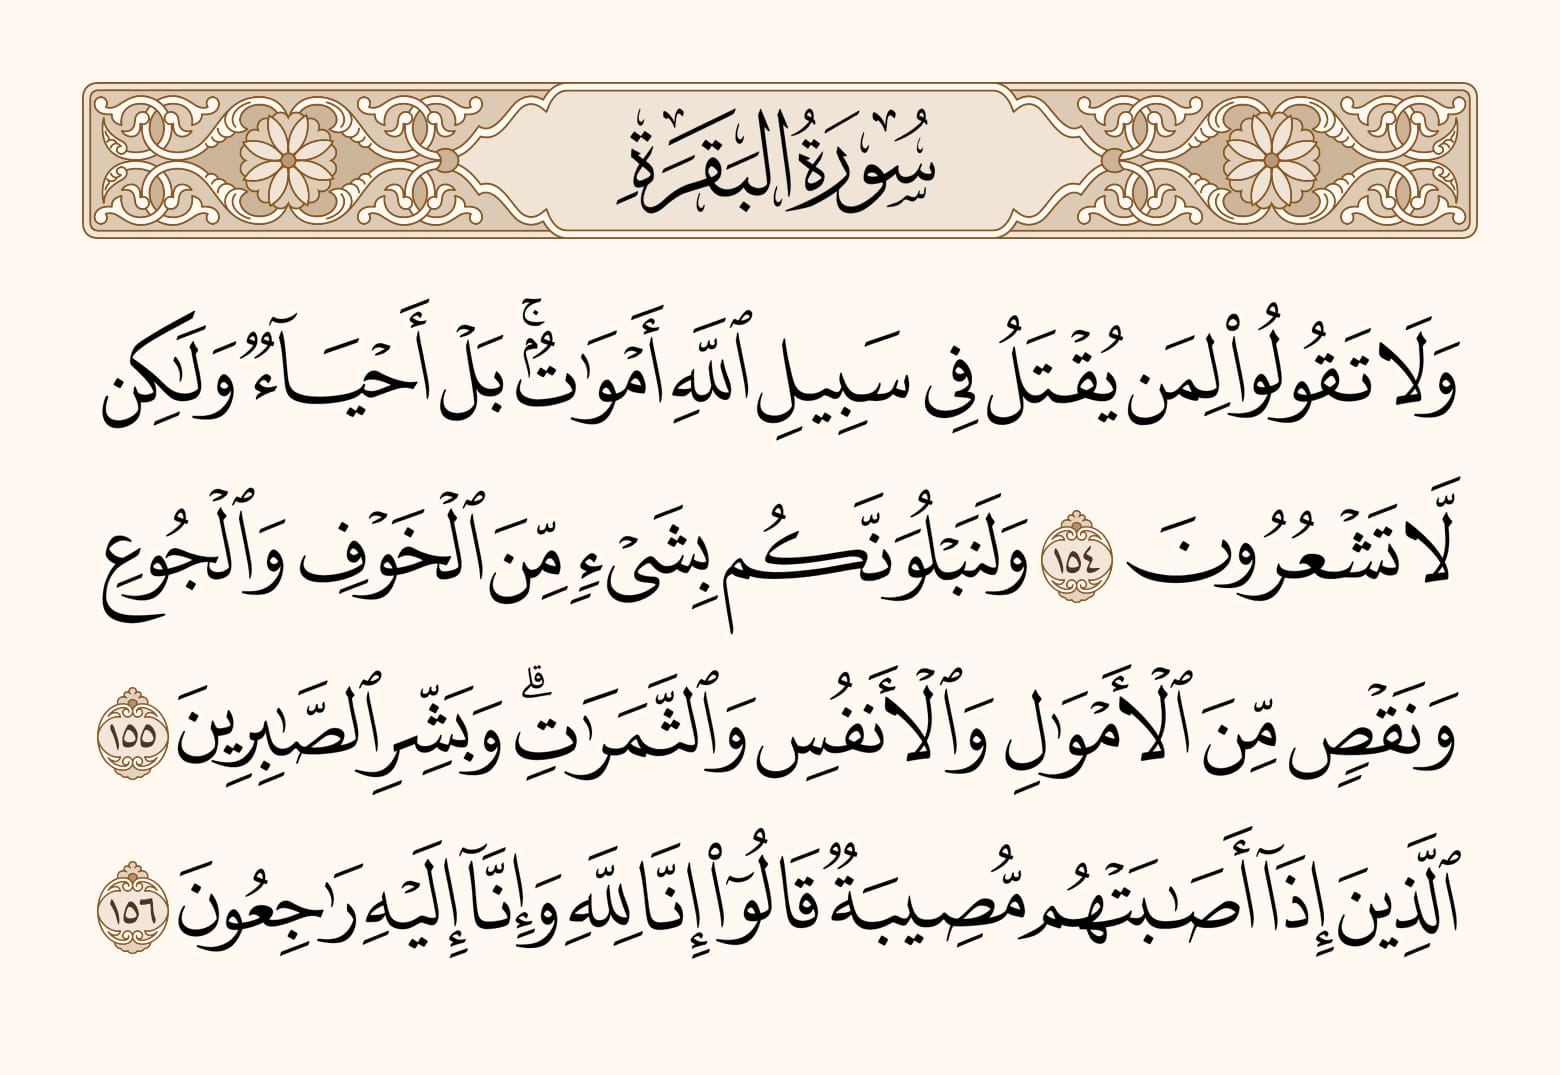 سُورَةُ البَقَرَةِ
وَلَا تَقُولُوا۟ لِمَن يُقۡتَلُ فِی سَبِیلِ ٱللَّهِ أَمۡوَ ٰ⁠تُۢۚ بَلۡ أَحۡیَاۤءࣱ وَلَـٰكِن
لَّا تَشۡعُرُونَ ١٥٤ وَلَنَبۡلُوَنَّكُم بِشَیۡءࣲ مِّنَ ٱلۡخَوۡفِ وَٱلۡجُوعِ
وَنَقۡصࣲ مِّنَ ٱلۡأَمۡوَ ٰ⁠لِ وَٱلۡأَنفُسِ وَٱلثَّمَرَ ٰ⁠تِۗ وَبَشِّرِ ٱلصَّـٰبِرِینَ ١٥٥
ٱلَّذِینَ إِذَاۤ أَصَـٰبَتۡهُم مُّصِیبَةࣱ قَالُوۤا۟ إِنَّا لِلَّهِ وَإِنَّاۤ إِلَیۡهِ رَ ٰ⁠جِعُونَ ١٥٦